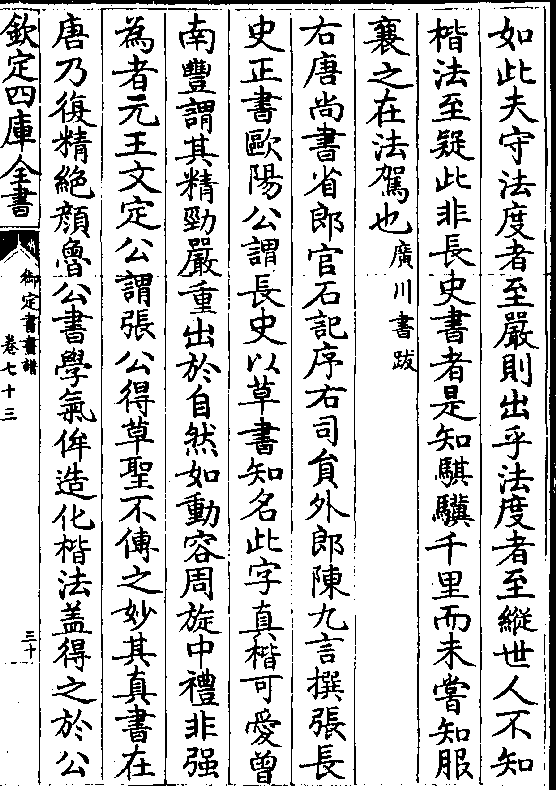 如此夫守法度者至嚴則出乎法度者至縱世人不知
楷法至疑此非長史書者是知騏驥千里而未嘗知服
襄之在法駕也廣川書跋
右唐尚書省郎官石記序右司貟外郎陳九言撰張長
史正書歐陽公謂長史以草書知名此字真楷可愛曾
南豐謂其精勁嚴重出於自然如動容周旋中禮非强
為者元王文定公謂張公得草聖不傳之妙其真書在
唐乃復精絶顔魯公書學氣侔造化楷法盖得之於公
欽定四庫全書
御定書畫譜
卷七十三
三十